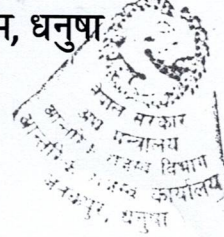 , धनुषा
नेपाल सरकार
अर्थ मन्त्रालय
आन्तरिक राजस्व विभाग
आन्तरिक राजस्व कार्यालय
जनकपुर, धनुषा